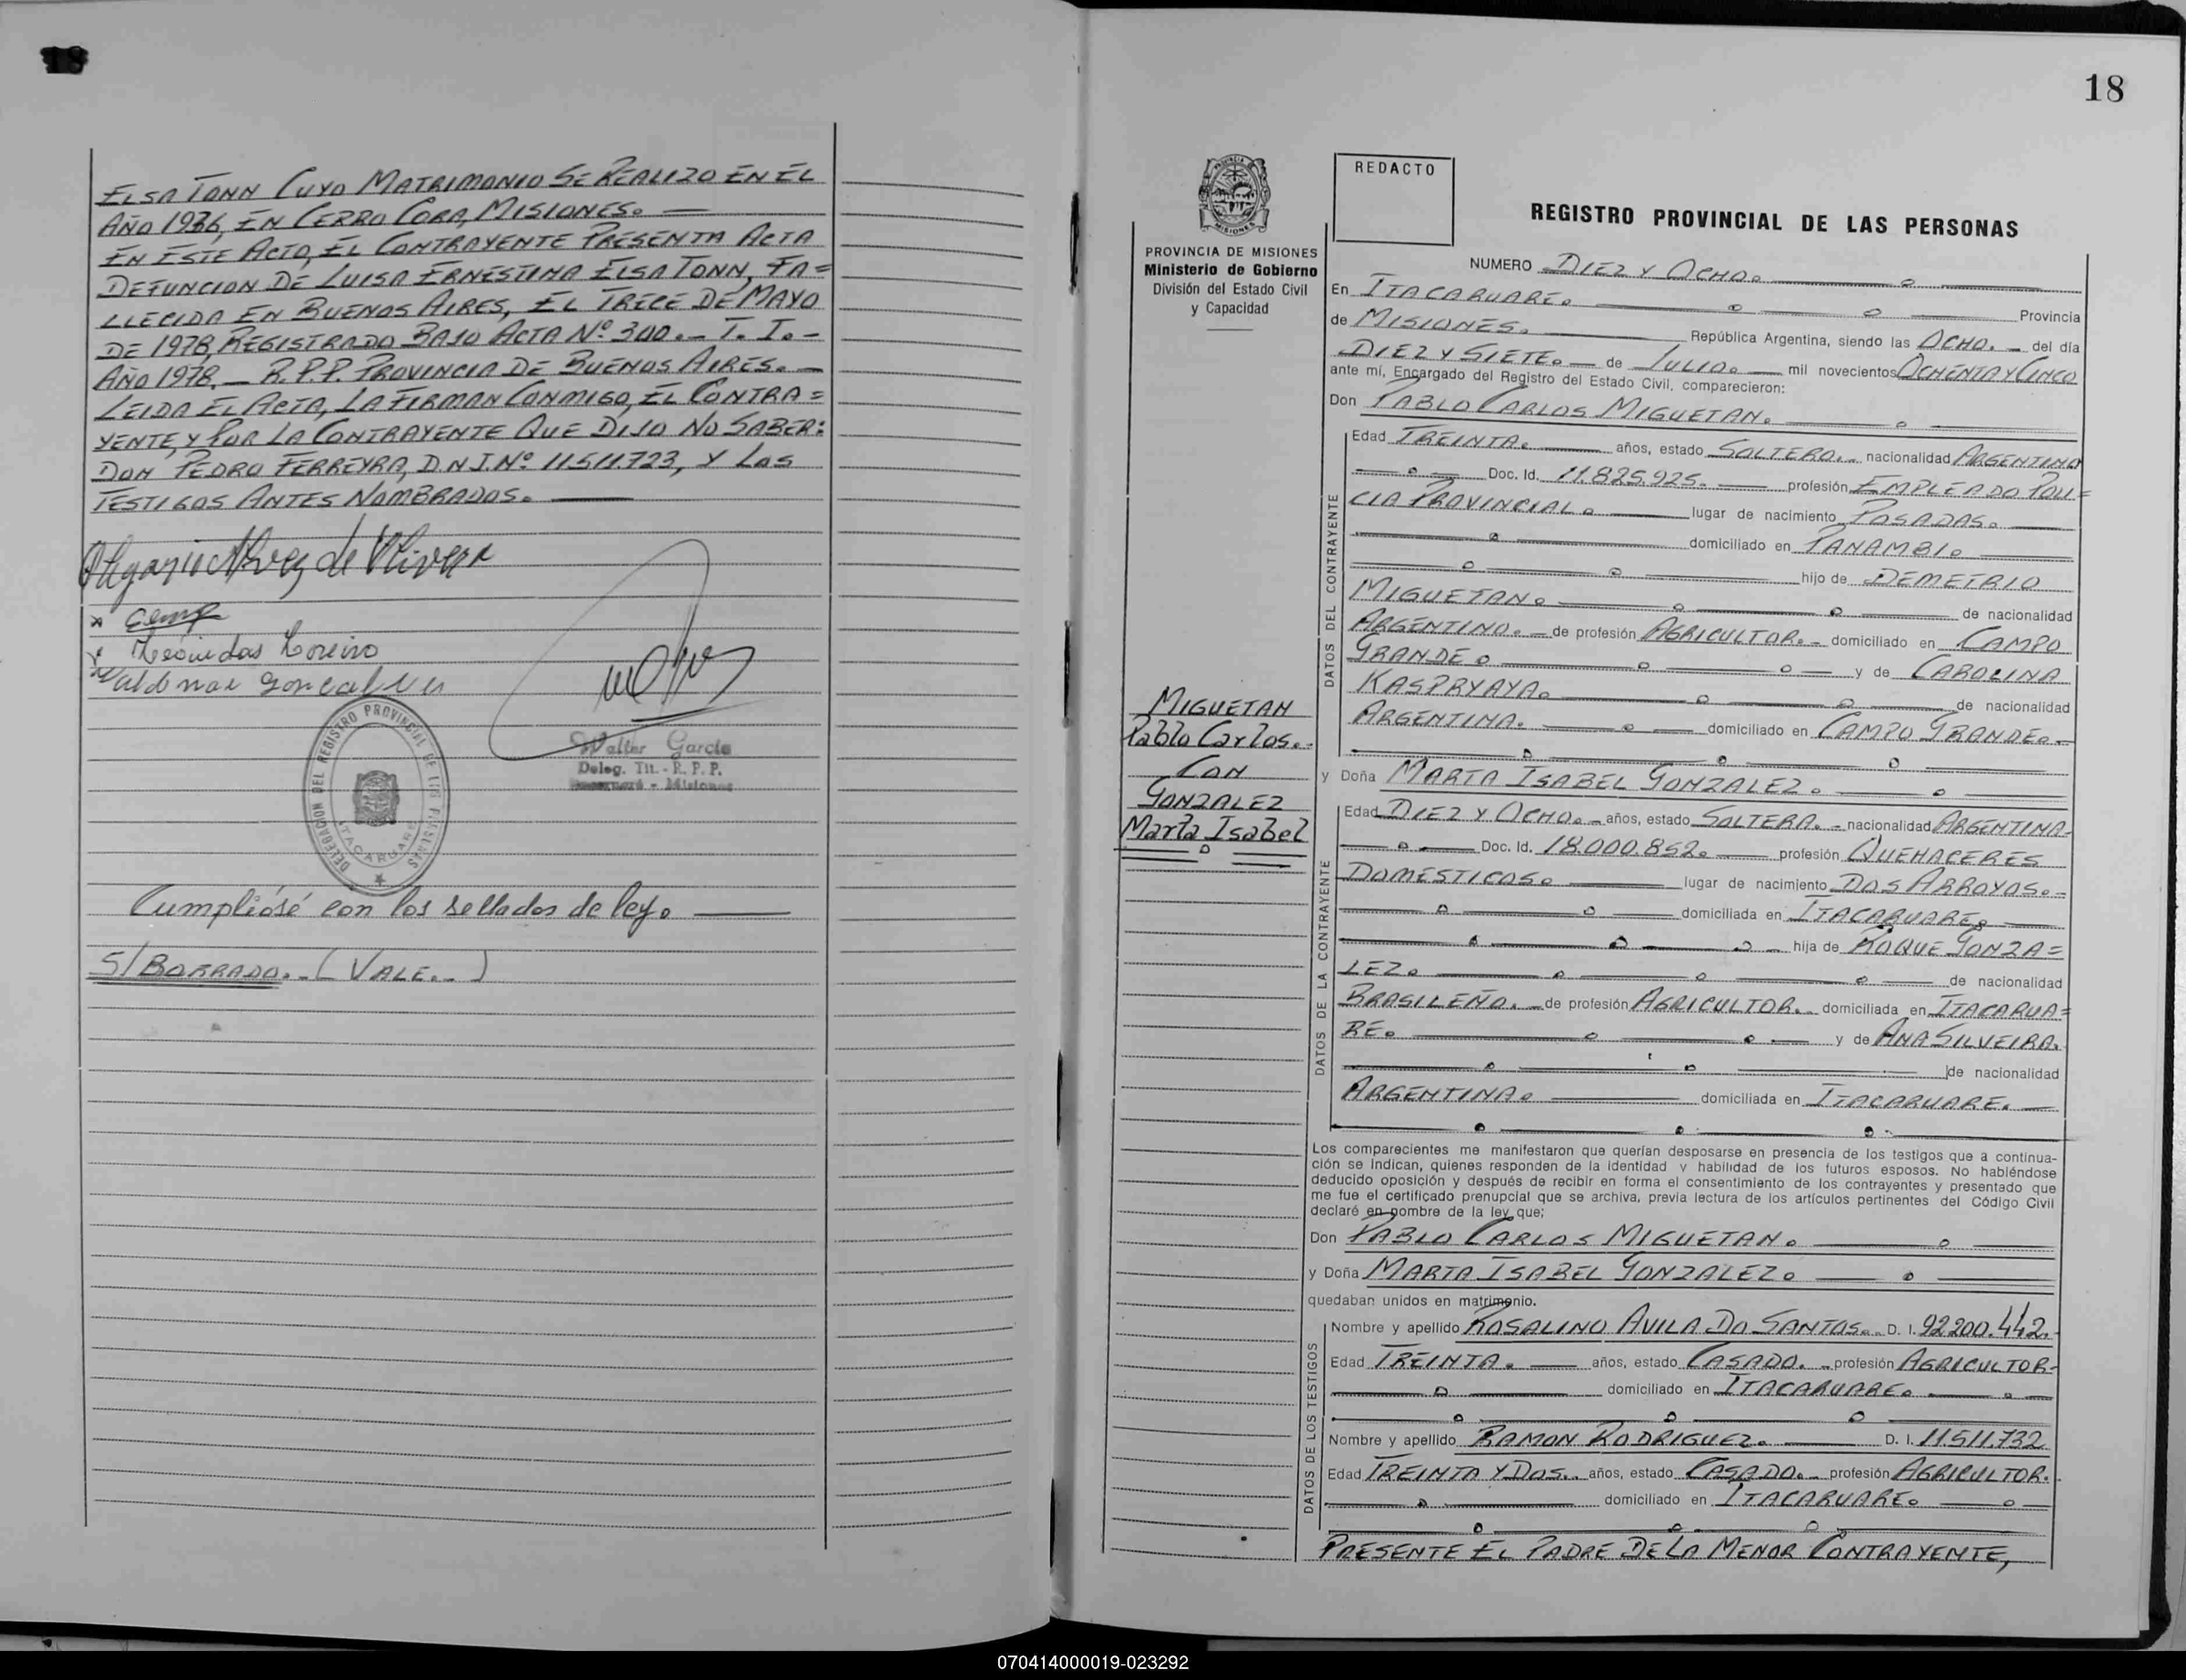 18
ELSA TONN CUYO MATRIMONIO SE REALIZO EN EL
AÑO 1936, EN CERRO CORA, MISIONES.
EN ESTE ACTO, EL CONTRAYENTE PRESENTA ACTA
DEFUNCION DE LUISA ERNESTINA ELSA TONN, FA=
LLECIDA EN BUENOS AIRES, EL TRECE DE MAYO
DE 1978, REGISTRADO BAJO ACTA Nº 300.- T. I.-
AÑO 1978.- R.P.P. PROVINCIA DE BUENOS AIRES.-
LEIDA EL ACTA, LA FIRMAN CONMIGO, EL CONTRA=
YENTE, Y POR LA CONTRAYENTE QUE DIJO NO SABER:
DON PEDRO FERREYRA, D.N.I. Nº 11.511.723, Y LOS
TESTIGOS ANTES NOMBRADOS.
Leonidas Loreiro
Waldemar Goncalves
Walter García
Deleg. Tit. - R. P. P.
Itacaruaré - Misiones
DELEGACION DEL REGISTRO PROVINCIAL DE LAS PERSONAS
ITACARUARE
Cumplióse con los sellados de ley.
S/BORRADO.-(VALE.-)
18
PROVINCIA DE MISIONES
Ministerio de Gobierno
División del Estado Civil
y Capacidad
REDACTO
REGISTRO PROVINCIAL DE LAS PERSONAS
NUMERO DIEZ Y OCHO.
En ITACARUARE. Provincia
de MISIONES. República Argentina, siendo las OCHO.- del día
DIEZ Y SIETE.- de JULIO.- mil novecientos OCHENTA Y CINCO
ante mí, Encargado del Registro del Estado Civil, comparecieron:
Don PABLO CARLOS MIGUETAN.
MIGUETAN
Pablo Carlos.-
CON
GONZALEZ
Marta Isabel
DATOS DEL CONTRAYENTE
Edad TREINTA. años, estado SOLTERO.- nacionalidad ARGENTINO
Doc. Id. 11.825.925. profesión EMPLEADO POLI=
CIA PROVINCIAL. lugar de nacimiento POSADAS.
domiciliado en PANAMBI.
hijo de DEMETRIO
MIGUETAN. de nacionalidad
ARGENTINO.- de profesión AGRICULTOR.- domiciliado en CAMPO
GRANDE. y de CAROLINA
KASPRYAYA. de nacionalidad
ARGENTINA. domiciliado en CAMPO GRANDE.-
y Doña MARTA ISABEL GONZALEZ.
DATOS DE LA CONTRAYENTE
Edad DIEZ Y OCHO.- años, estado SOLTERA.- nacionalidad ARGENTINA-
Doc. Id. 18.000.852. profesión QUEHACERES
DOMESTICOS. lugar de nacimiento DOS ARROYOS.=
domiciliada en ITACARUARE.
hija de ROQUE GONZA=
LEZ. de nacionalidad
BRASILEÑA.- de profesión AGRICULTOR.- domiciliada en ITACARUA=
RE. y de ANA SILVEIRA.
de nacionalidad
ARGENTINA. domiciliada en ITACARUARE.
Los comparecientes me manifestaron que querían desposarse en presencia de los testigos que a continua-
ción se indican, quienes responden de la identidad y habilidad de los futuros esposos. No habiéndose
deducido oposición y después de recibir en forma el consentimiento de los contrayentes y presentado que
me fue el certificado prenupcial que se archiva, previa lectura de los artículos pertinentes del Código Civil
declaré en nombre de la ley que;
Don PABLO CARLOS MIGUETAN.
y Doña MARTA ISABEL GONZALEZ.
quedaban unidos en matrimonio.
DATOS DE LOS TESTIGOS
Nombre y apellido ROSALINO AVILA DO SANTOS.- D. I. 92.200.442.
Edad TREINTA. años, estado CASADO.- profesión AGRICULTOR-
domiciliado en ITACARUARE.
Nombre y apellido RAMON RODRIGUEZ. D. I. 11.511.732
Edad TREINTA Y DOS.- años, estado CASADO.- profesión AGRICULTOR.
domiciliado en ITACARUARE.
PRESENTE EL PADRE DE LA MENOR CONTRAYENTE,
070414000019-023292